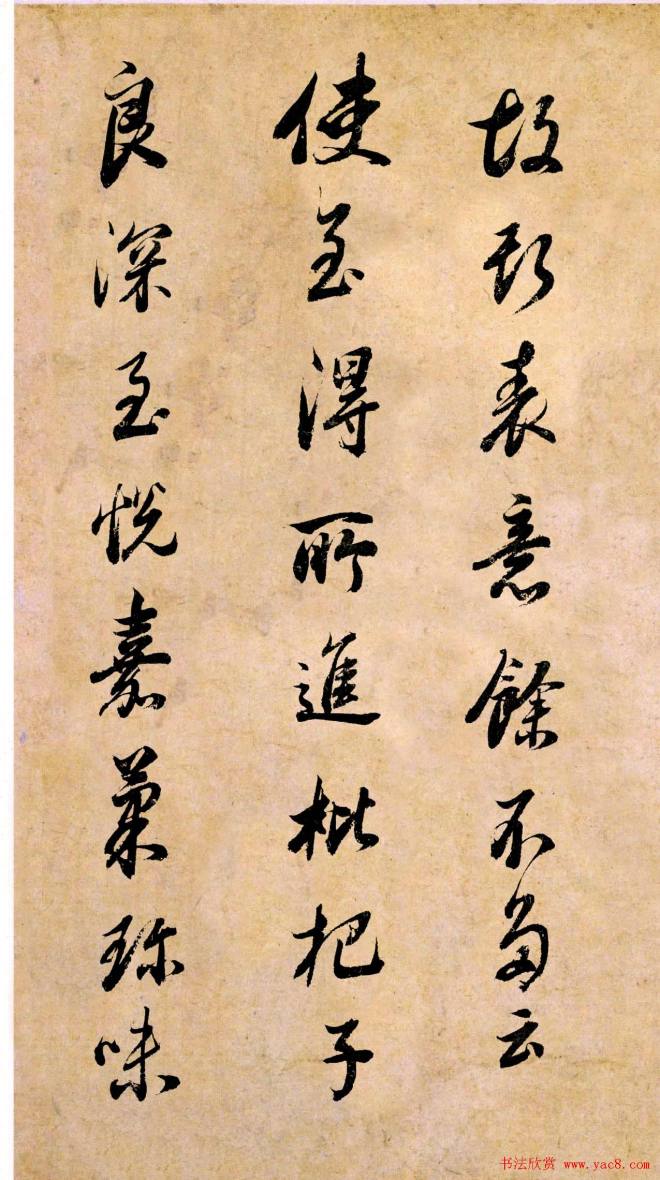 故斯表意餘不多云
使至得所進枇杷子
良深至悅嘉菓珎味
书法欣赏 www.yac8.com